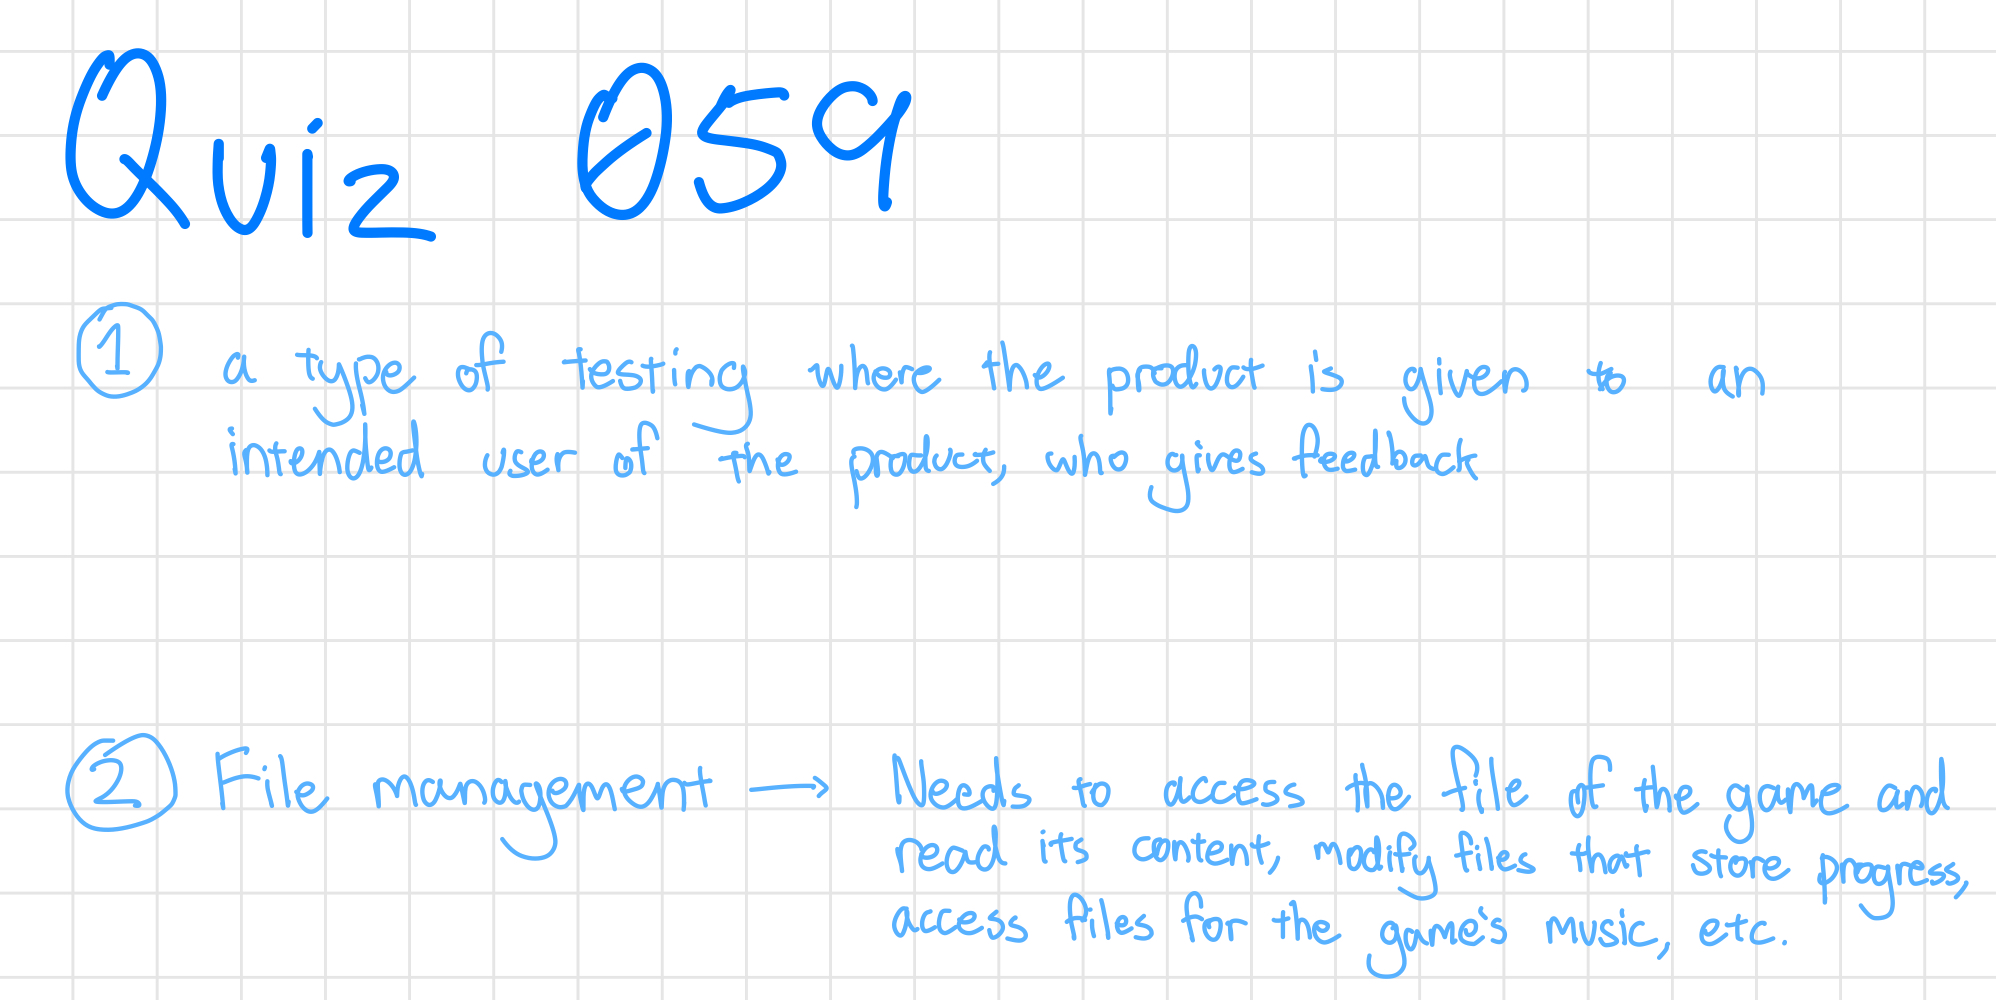 Quiz 059
1 a type of testing where the product is given to an
intended user of the product, who gives feedback
2 File management → Needs to access the file of the game and
read its content, modify files that store progress,
access files for the game's music, etc.